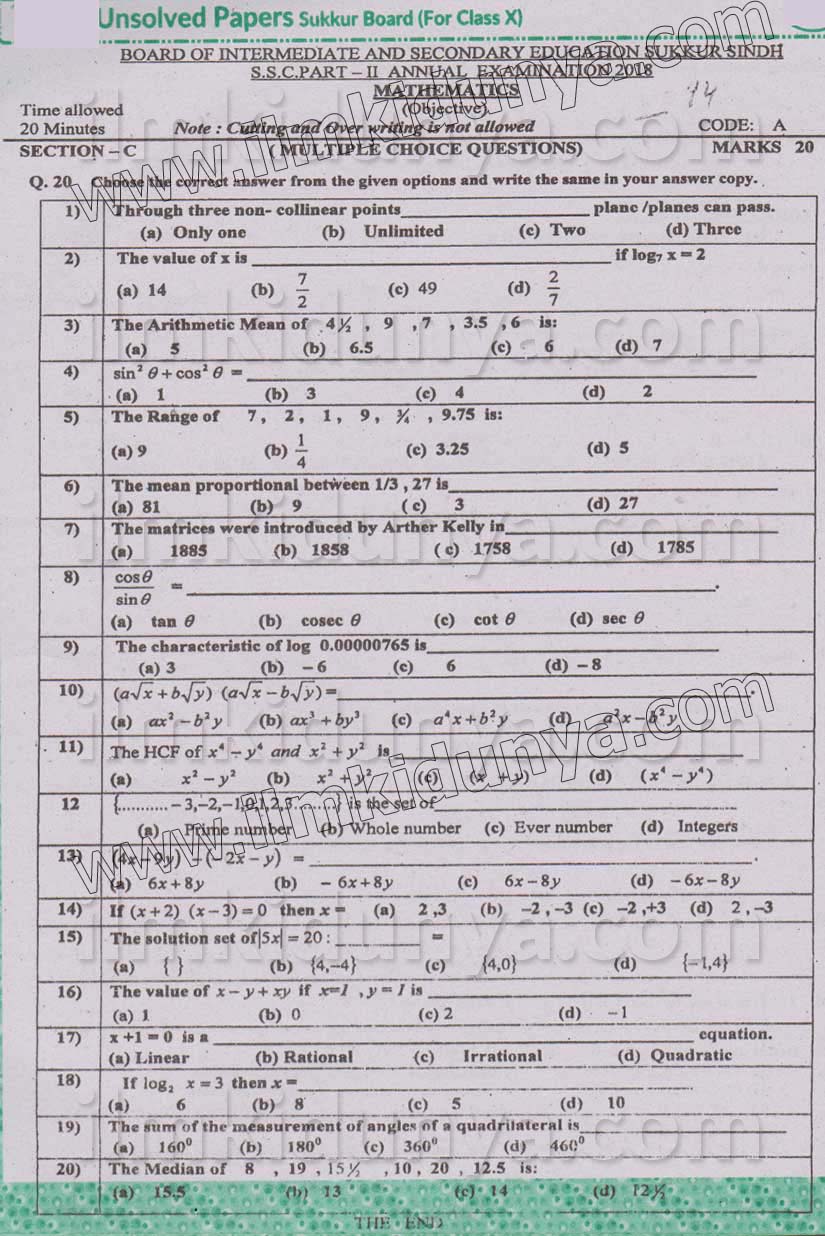 Unsolved Papers Sukkur Board (For Class X)
BOARD OF INTERMEDIATE AND SECONDARY EDUCATION SUKKUR SINDH
S.S.C.PART – II ANNUAL EXAMINATION 2018
MATHEMATICS
14
Time allowed (Objective)
20 Minutes Note : Cutting and Over writing is not allowed CODE: A
SECTION – C ( MULTIPLE CHOICE QUESTIONS) MARKS 20
Q. 20 Choose the correct answer from the given options and write the same in your answer copy.
1) Through three non- collinear points____ plane /planes can pass.
(a) Only one (b) Unlimited (c) Two (d) Three
2) The value of x is ____ if log₇ x = 2
(a) 14 (b) 7/2 (c) 49 (d) 2/7
3) The Arithmetic Mean of 4½ , 9 , 7 , 3.5 , 6 is:
(a) 5 (b) 6.5 (c) 6 (d) 7
4) sin² θ + cos² θ = ____
(a) 1 (b) 3 (c) 4 (d) 2
5) The Range of 7 , 2 , 1 , 9 , ¾ , 9.75 is:
(a) 9 (b) 1/4 (c) 3.25 (d) 5
6) The mean proportional between 1/3 , 27 is____
(a) 81 (b) 9 ( c ) 3 (d) 27
7) The matrices were introduced by Arther Kelly in____
(a) 1885 (b) 1858 ( c) 1758 (d) 1785
8) cosθ/sinθ = ____.
(a) tan θ (b) cosec θ (c) cot θ (d) sec θ
9) The characteristic of log 0.00000765 is____
(a) 3 (b) – 6 (c) 6 (d) – 8
10) (a√x + b√y) (a√x – b√y) = ____.
(a) ax² – b²y (b) ax³ + by³ (c) a⁴x + b²y (d) a²x – b²y
11) The HCF of x⁴ – y⁴ and x² + y² is____
(a) x² – y² (b) x² + y² (c) (x + y) (d) (x⁴ – y⁴)
12 {........... – 3,–2,–1,0,1,2,3.........} is the set of____
(a) Prime number (b) Whole number (c) Ever number (d) Integers
13) (4x – 9y) – (– 2x – y) = ____.
(a) 6x + 8y (b) – 6x + 8y (c) 6x – 8y (d) – 6x – 8y
14) If (x + 2) (x – 3) = 0 then x = (a) 2 ,3 (b) –2 , –3 (c) –2 ,+3 (d) 2 , –3
15) The solution set of |5x| = 20 : ____ =
(a) { } (b) {4,–4} (c) {4,0} (d) {–1,4}
16) The value of x – y + xy if x=1 , y = 1 is ____
(a) 1 (b) 0 (c) 2 (d) –1
17) x +1 = 0 is a ____ equation.
(a) Linear (b) Rational (c) Irrational (d) Quadratic
18) If log₂ x = 3 then x = ____
(a) 6 (b) 8 (c) 5 (d) 10
19) The sum of the measurement of angles of a quadrilateral is____
(a) 160⁰ (b) 180⁰ (c) 360⁰ (d) 460⁰
20) The Median of 8 , 19 , 15½ , 10 , 20 , 12.5 is:
(a) 15.5 (b) 13 (c) 14 (d) 12½
THE END
www.ilmkidunya.com
www.ilmkidunya.com
ilmkidunya.com
ilmkidunya.com
ilmkidunya.com
ilmkidunya.com
ilmkidunya.com
ilmkidunya.com